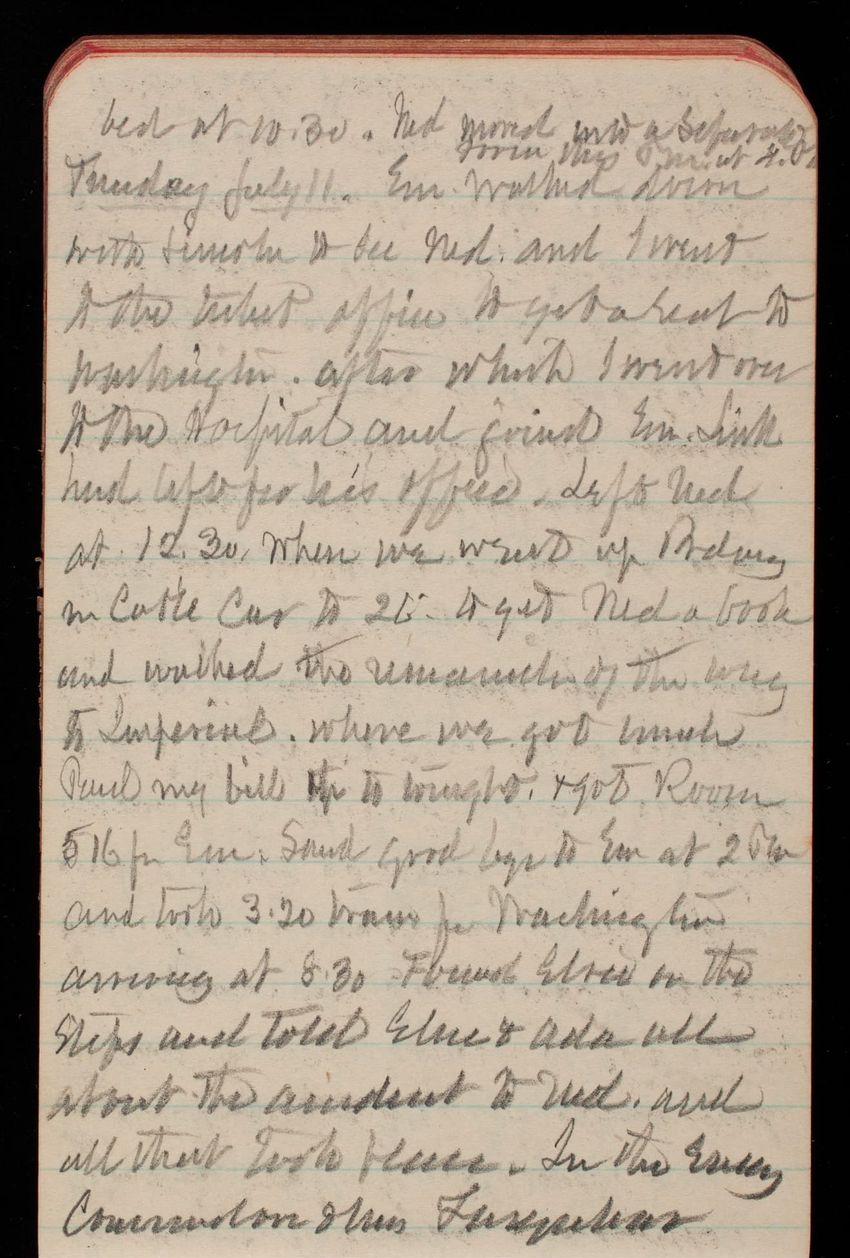 bed at 10.30. Ned moved into a Separate
room this P.m. at 4.
Tuesday July 11. Em. walked down
with Lincoln to see Ned. and I went
to the ticket office to get a seat to
Washington. after which I went over
to the Hospital and joined Em. Link
had left for his office. Left Ned
at 12.30, When we went up Bdway
in Cable Car to 26. to get Ned a book
and walked the remainder of the way
to Imperial. where we got lunch
Paid my bill up to tonight. & got Room
516 for Em. Said good bye to Em at 2 Pm
and took 3.20 train for Washington
arriving at 8.30 Found Elsie on the
Steps and told Elsie & Ada all
about the accident to Ned. and
all that took place. In the Eveng
Commodore & Mrs Farquhar